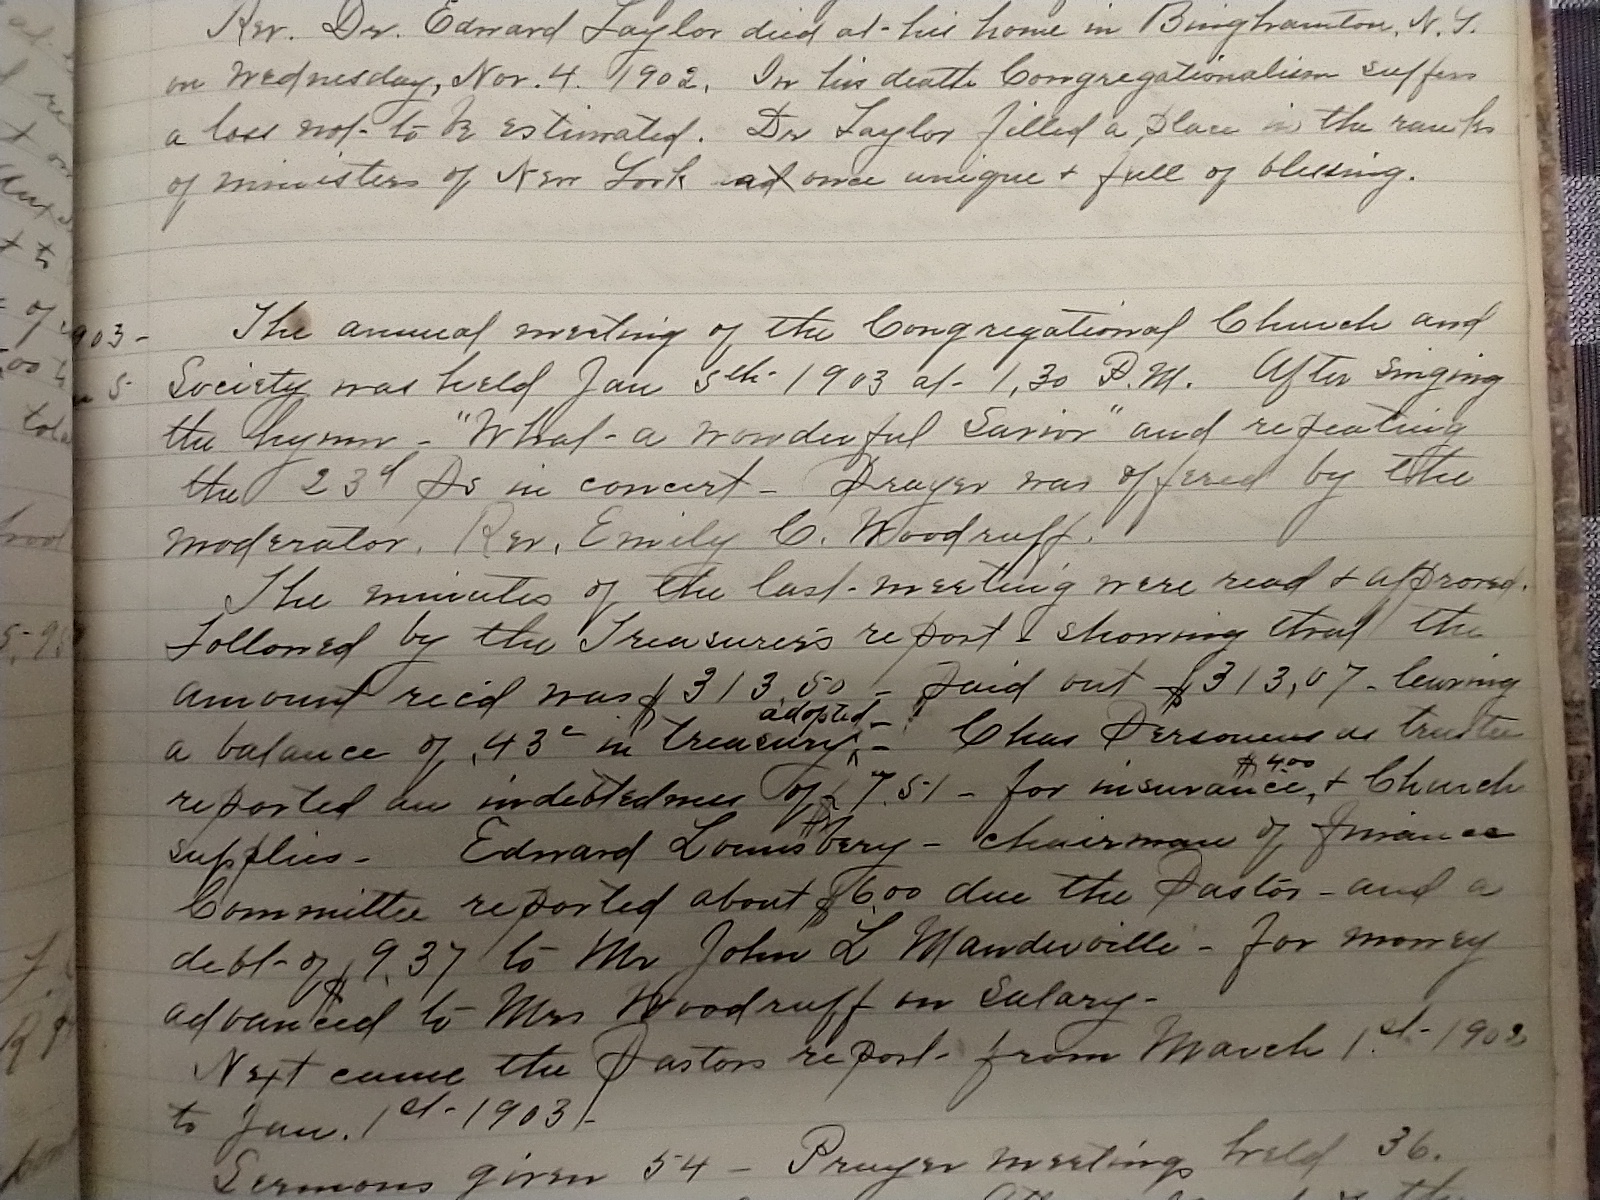 Rev. Dr. Edward Taylor died at his home in Binghamton, N.Y.
on Wednesday, Nov. 4. 1902. In his death Congregationalism suffers
a loss not to be estimated. Dr Taylor filled a place in the ranks
of ministers of New York at once unique + full of blessing.
1903 - The annual meeting of the Congregational Church and
Society was held Jan 5th 1903 at 1,30 P.M. After singing
the hymn - "What a wonderful Savior" and repeating
the 23d Ps in concert - Prayer was offered by the
moderator. Rev. Emily C. Woodruff.
The minutes of the last meeting were read + approved.
Followed by the Treasurer's report - showing that the
amount rec'd was $313.50 - paid out $313,07 - leaving
a balance of .43c in treasury, adopted - Chas Personeus as trustee
reported an indebtedness of $7.51 - for insurance, $4.00 + Church
supplies - Edward Lounsbery - chairman of finance
Committee reported about $6.00 due the Pastor - and a
debt of $9.37 to Mr John L Mandeville - for money
advanced to Mrs Woodruff on salary -
Next came the Pastors report from March 1st 1902
to Jan. 1st 1903 -
Sermons given 54 - Prayer meetings held 36.